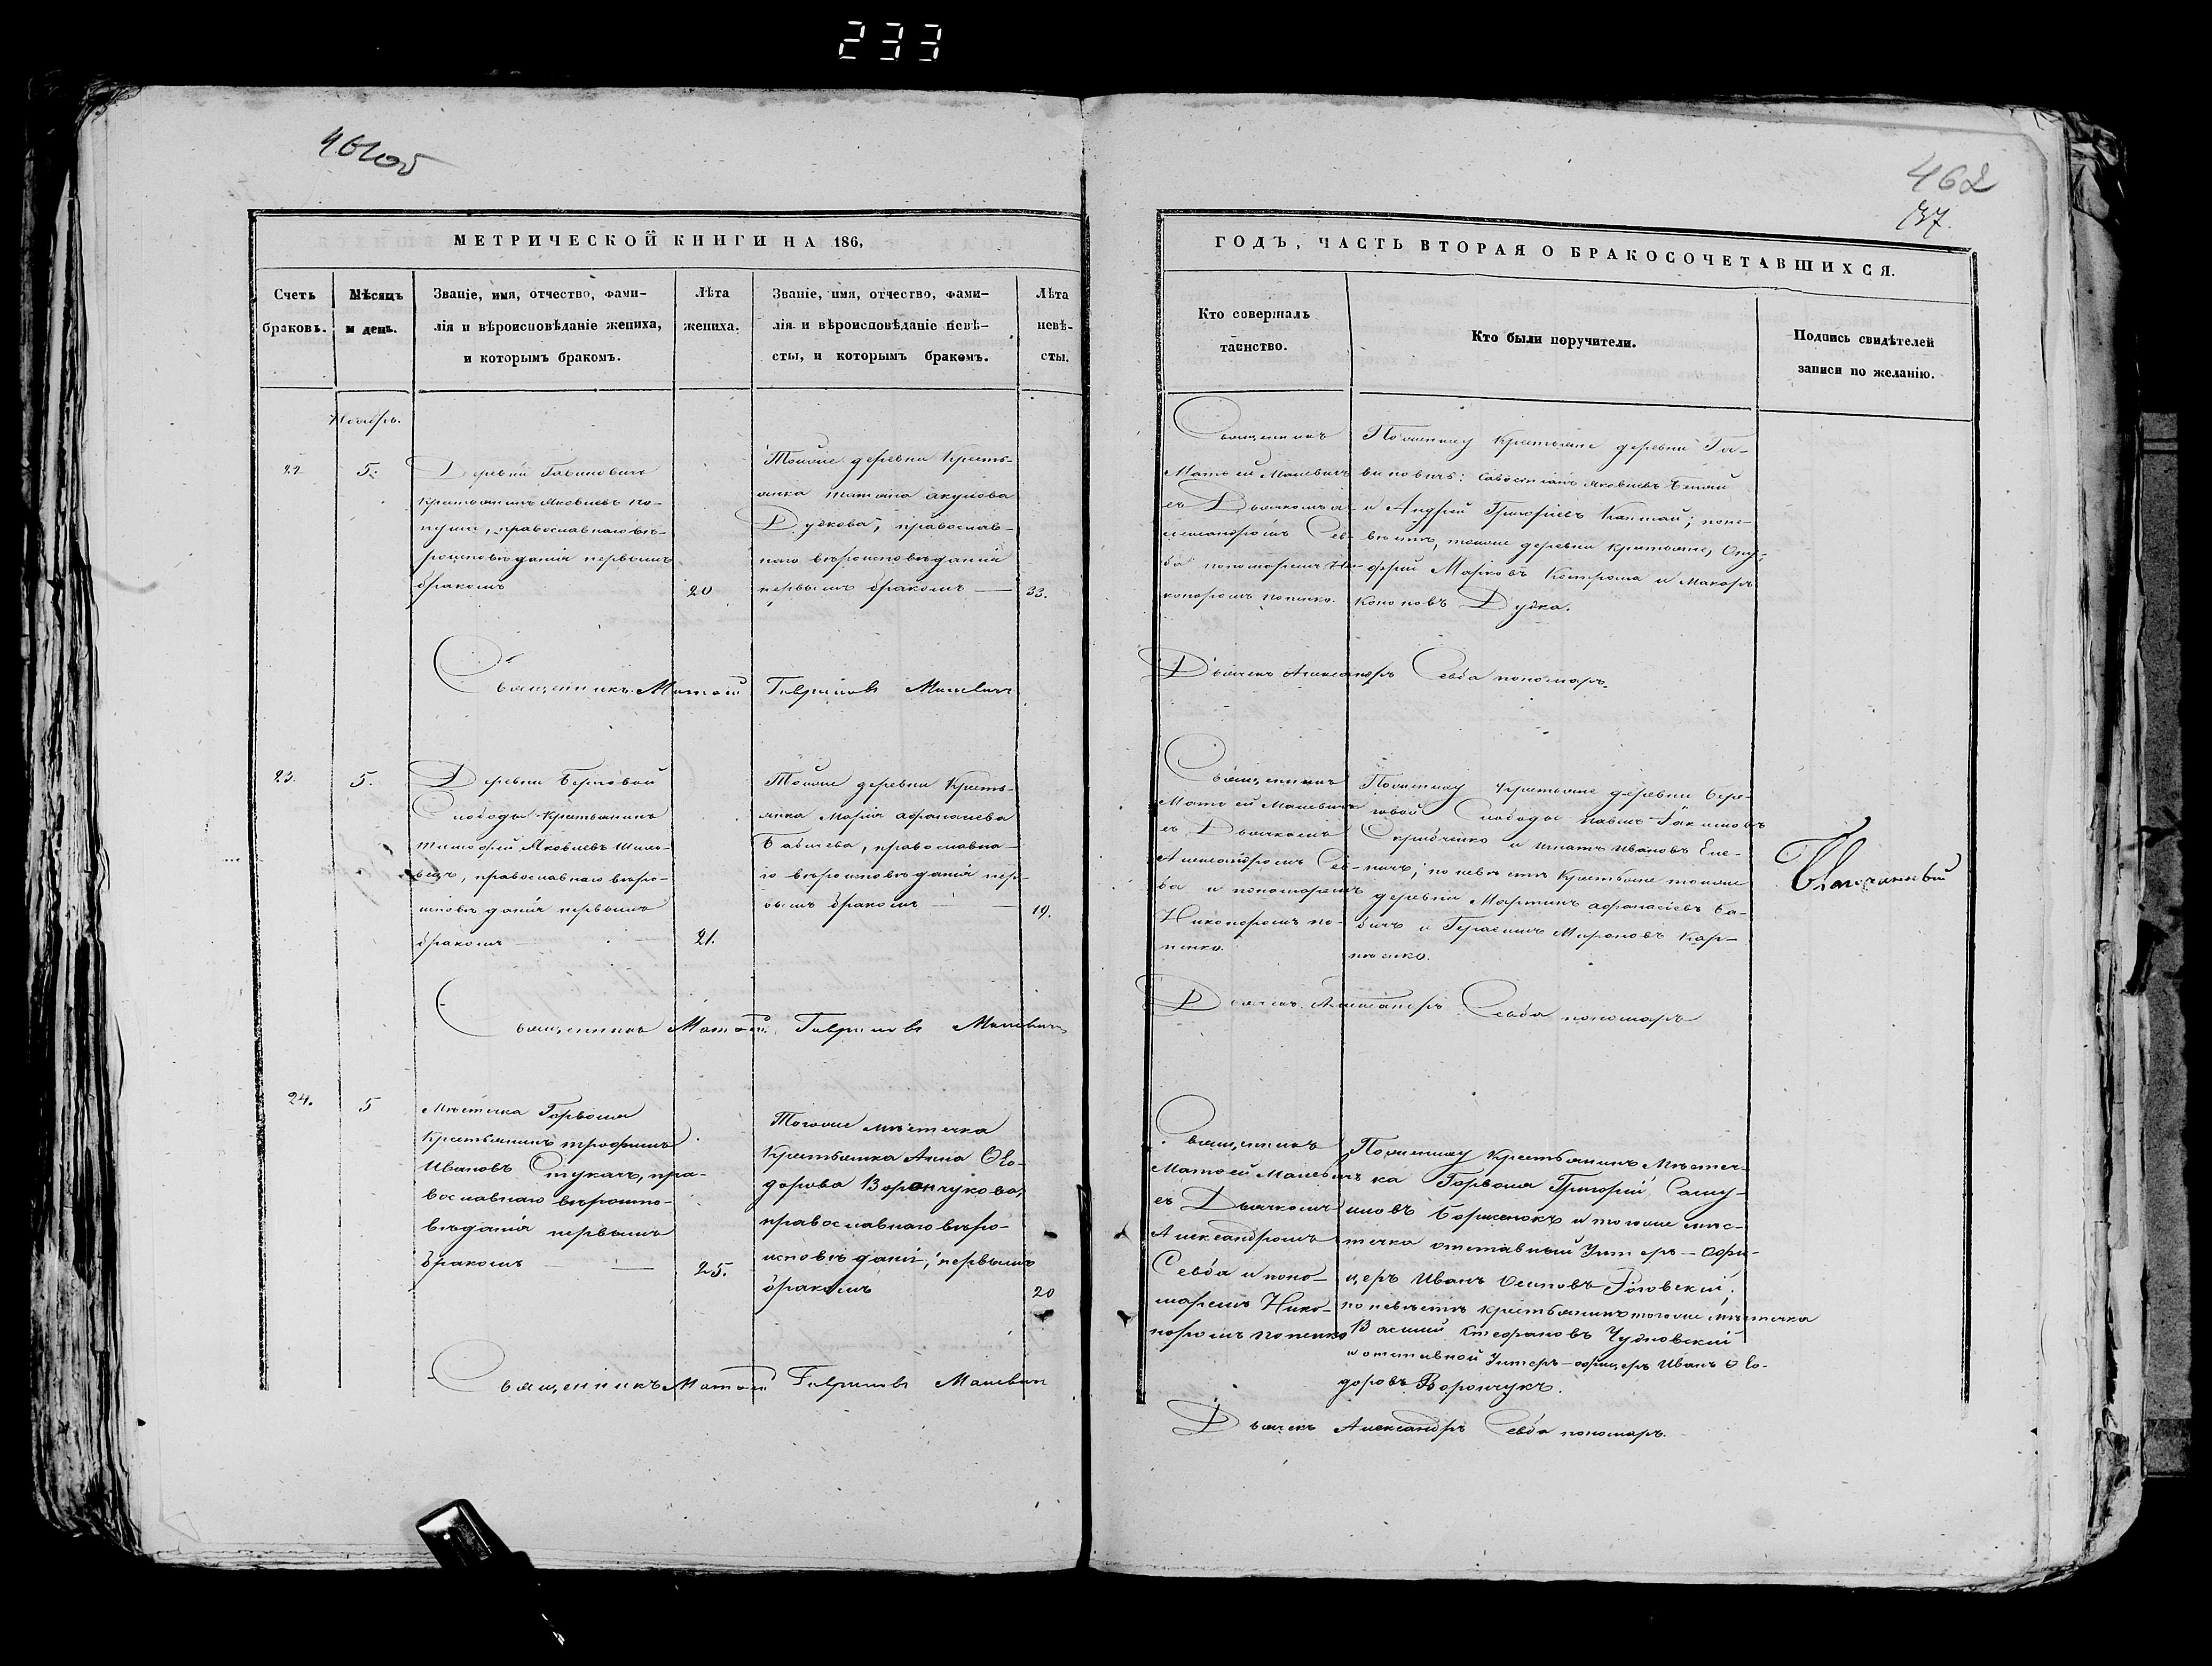 233
461об
462
37.
МЕТРИЧЕСКОЙ КНИГИ НА 186,
ГОДЪ, ЧАСТЬ ВТОРАЯ О БРАКОСОЧЕТАВШИХСЯ.
Счетъ
браковъ.
Мѣсяцъ
и день.
Званіе, имя, отчество, фами-
лія и вѣроисповѣданіе жениха,
и которымъ бракомъ.
Лѣта
жениха.
Званіе, имя, отчество, фами-
лія и вѣроисповѣданіе невѣ-
сты, и которымъ бракомъ.
Лѣта
невѣ-
сты.
Кто совершалъ
таинство.
Кто были поручители.
Подпись свидѣтелей
записи по желанію.
Ноябрь.
22
5.
Деревни Гавиновичь
Крестьянинъ Яковлевъ
православнаго вѣ-
роисповѣданія первымъ
бракомъ
20
Тойже деревни Кресть-
янка татіана акулова
Дудкова, православ-
наго вѣроисповѣданія
первымъ бракомъ —
33.
Священникъ
Матѳей Малевичъ
съ Дьячкомъ а-
лександромъ Сев-
ба пономаремъ Ни-
каноромъ попенко.
По жениху Крестьяне деревни Га-
виновичь: Савостіанъ Яковлевъ
и Андрей Григоріевъ Капшай; по не-
вѣстѣ, тойже деревни крестьяне, Ону-
фрій Марковъ Кострома и Макаръ
Кононовъ Дудка.
Священникъ Матѳей Гавриловъ Малевичъ
Дьячекъ Александръ Севба пономарь.
23.
5.
Деревни Береговой
Слободы Крестьянинъ
тимофей Яковлевъ Шиль-
православнаго вѣро-
исповѣданія первымъ
бракомъ —
21.
Тойже деревни Кресть-
янка Марія афанасіева
Бабичева, православна-
го вѣроисповѣданія пер-
вымъ бракомъ —
19.
Священникъ
Матѳей Малевичъ
съ Дьячкомъ
Александромъ Сев-
ба и пономаремъ
Никаноромъ по-
пенко.
По жениху Крестьяне деревни Бере-
говой Слободы Павелъ Іакимовъ
Скрибченко и Игнатъ Ивановъ
по невѣстѣ Крестьяне тойже
деревни Мартинъ афанасіевъ Ба-
бичъ и Герасимъ Мироновъ Кар-
пѣенко.
Священникъ Матѳей Гавриловъ Малевичъ
Дьячекъ Александръ Севба пономарь
24.
5
Мѣстечка Горволя
Крестьянинъ трофимъ
Ивановъ Стукачъ, пра-
вославнаго вѣроиспо-
вѣданія первымъ
бракомъ — —
25.
Тогоже мѣстечка
Крестьянка Анна Ѳео-
дорова Ворончукова,
православнаго вѣро-
исповѣданія, первымъ
бракомъ
20
Священникъ
Матѳей Малевичъ
съ Дьячкомъ
Александромъ
Севба и поно-
маремъ Ника-
норомъ попенко
По жениху Крестьянинъ Мѣстеч-
ка Горволя Григорій Саму-
иловъ Борисенокъ и тогоже мѣс-
течка отставный Унтеръ-Офи-
церъ Иванъ Осиповъ Роговскій;
по невѣстѣ крестьянинъ тогоже мѣстечка
Василій Стефановъ Чудновскій
и отставной Унтеръ-офицеръ Иванъ Ѳео-
доровъ Ворончукъ.
Священникъ Матѳей Гавриловъ Малевичъ
Дьячекъ Александръ Севба пономарь.